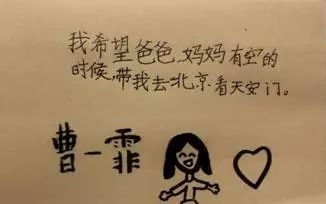 我希望爸爸、妈妈有空的
时候,带我去北京看天安门。
曹一霏